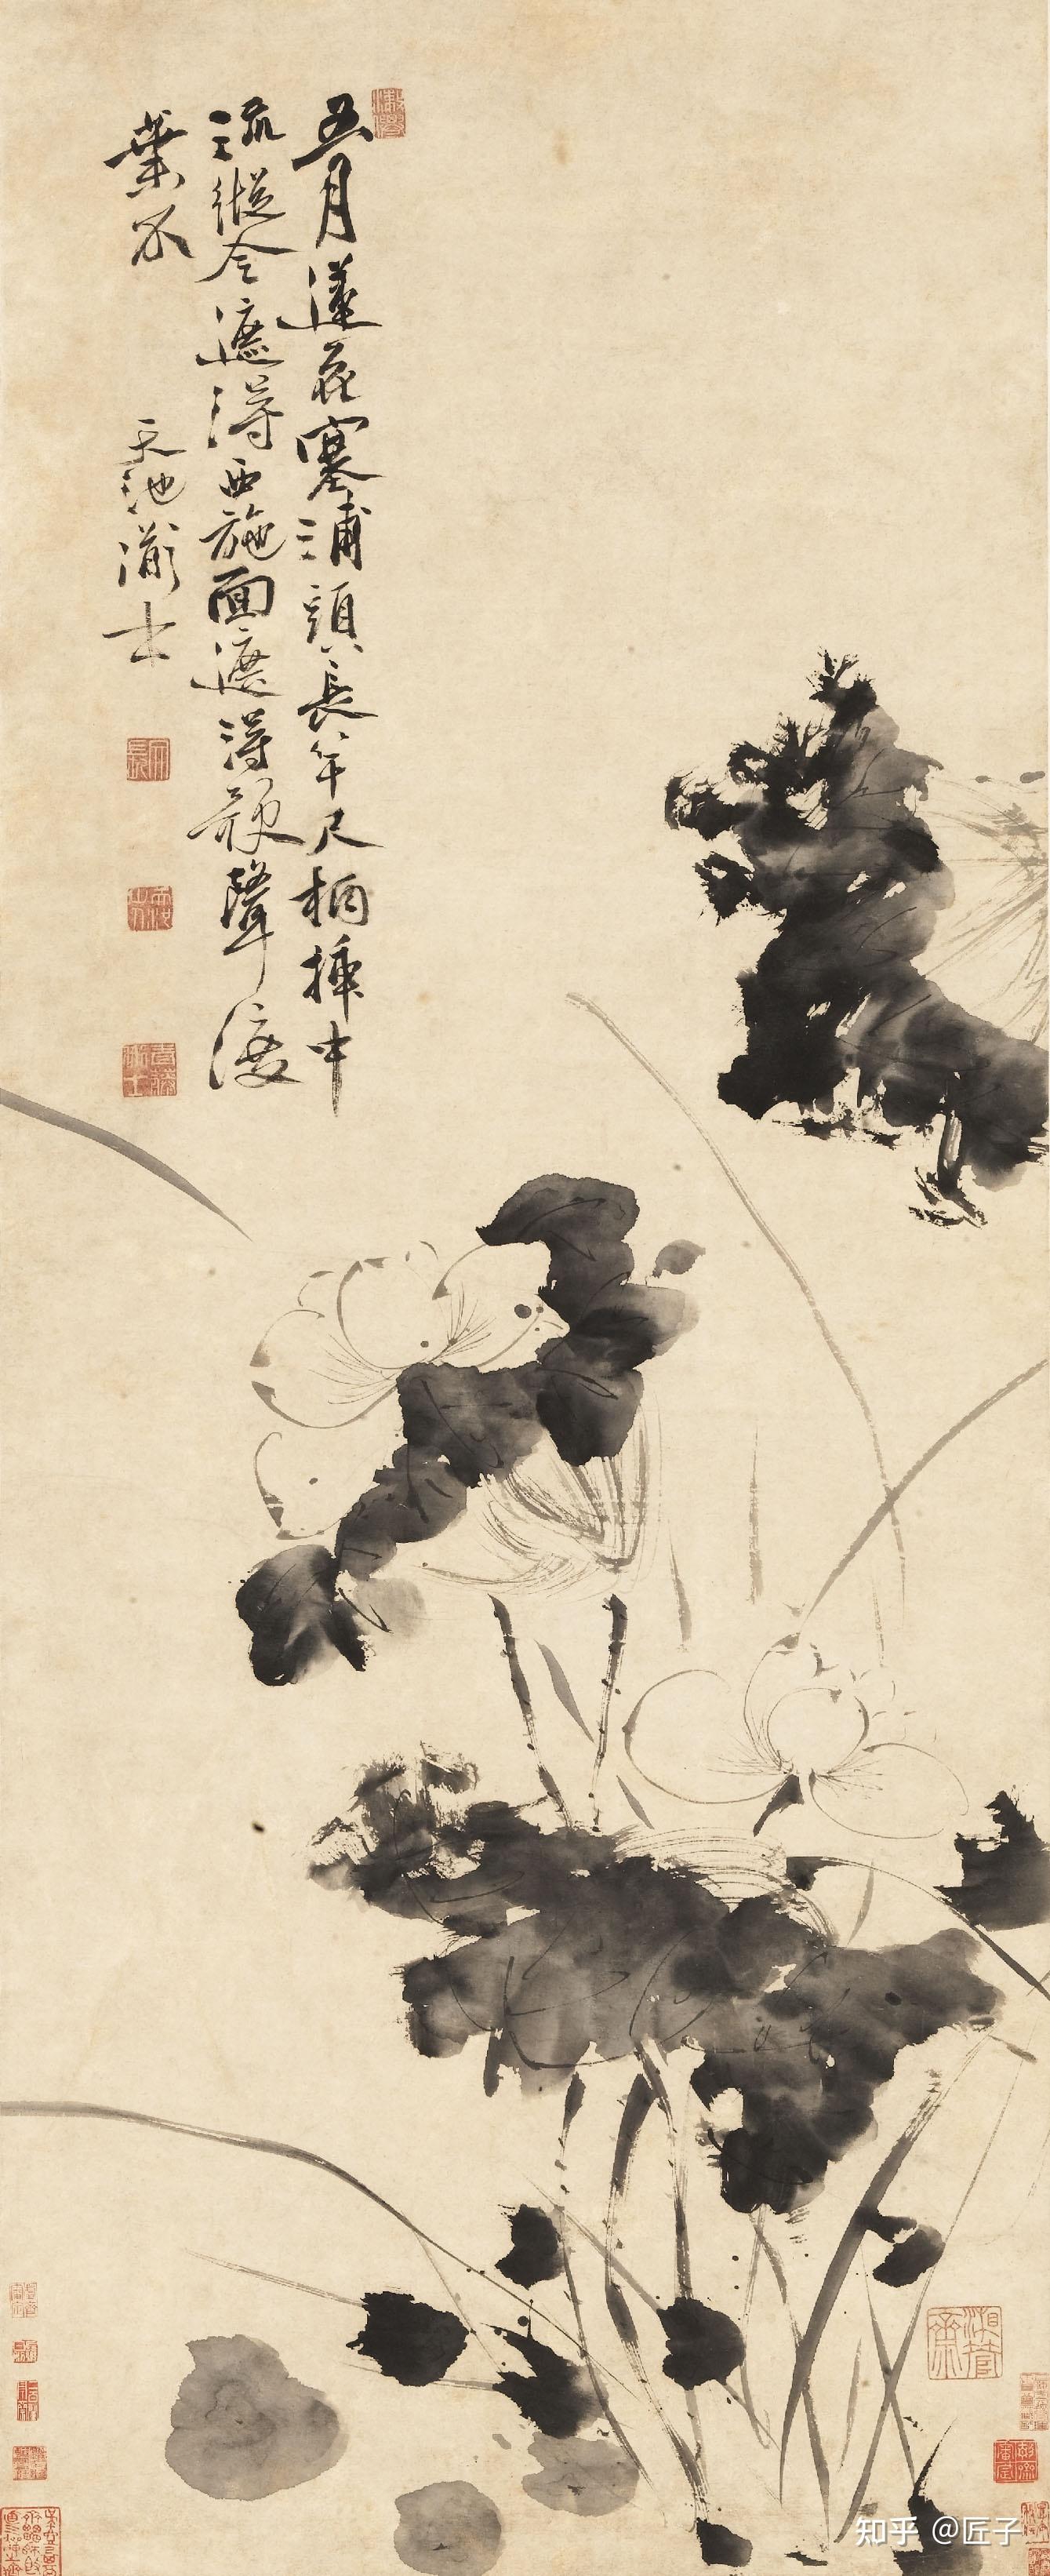 五月蓮花塞浦頭長竿尺柄插中
流縱令遮得西施面遮得歌聲渡
葉不
天池漱士
湘管齋
知乎 @匠子